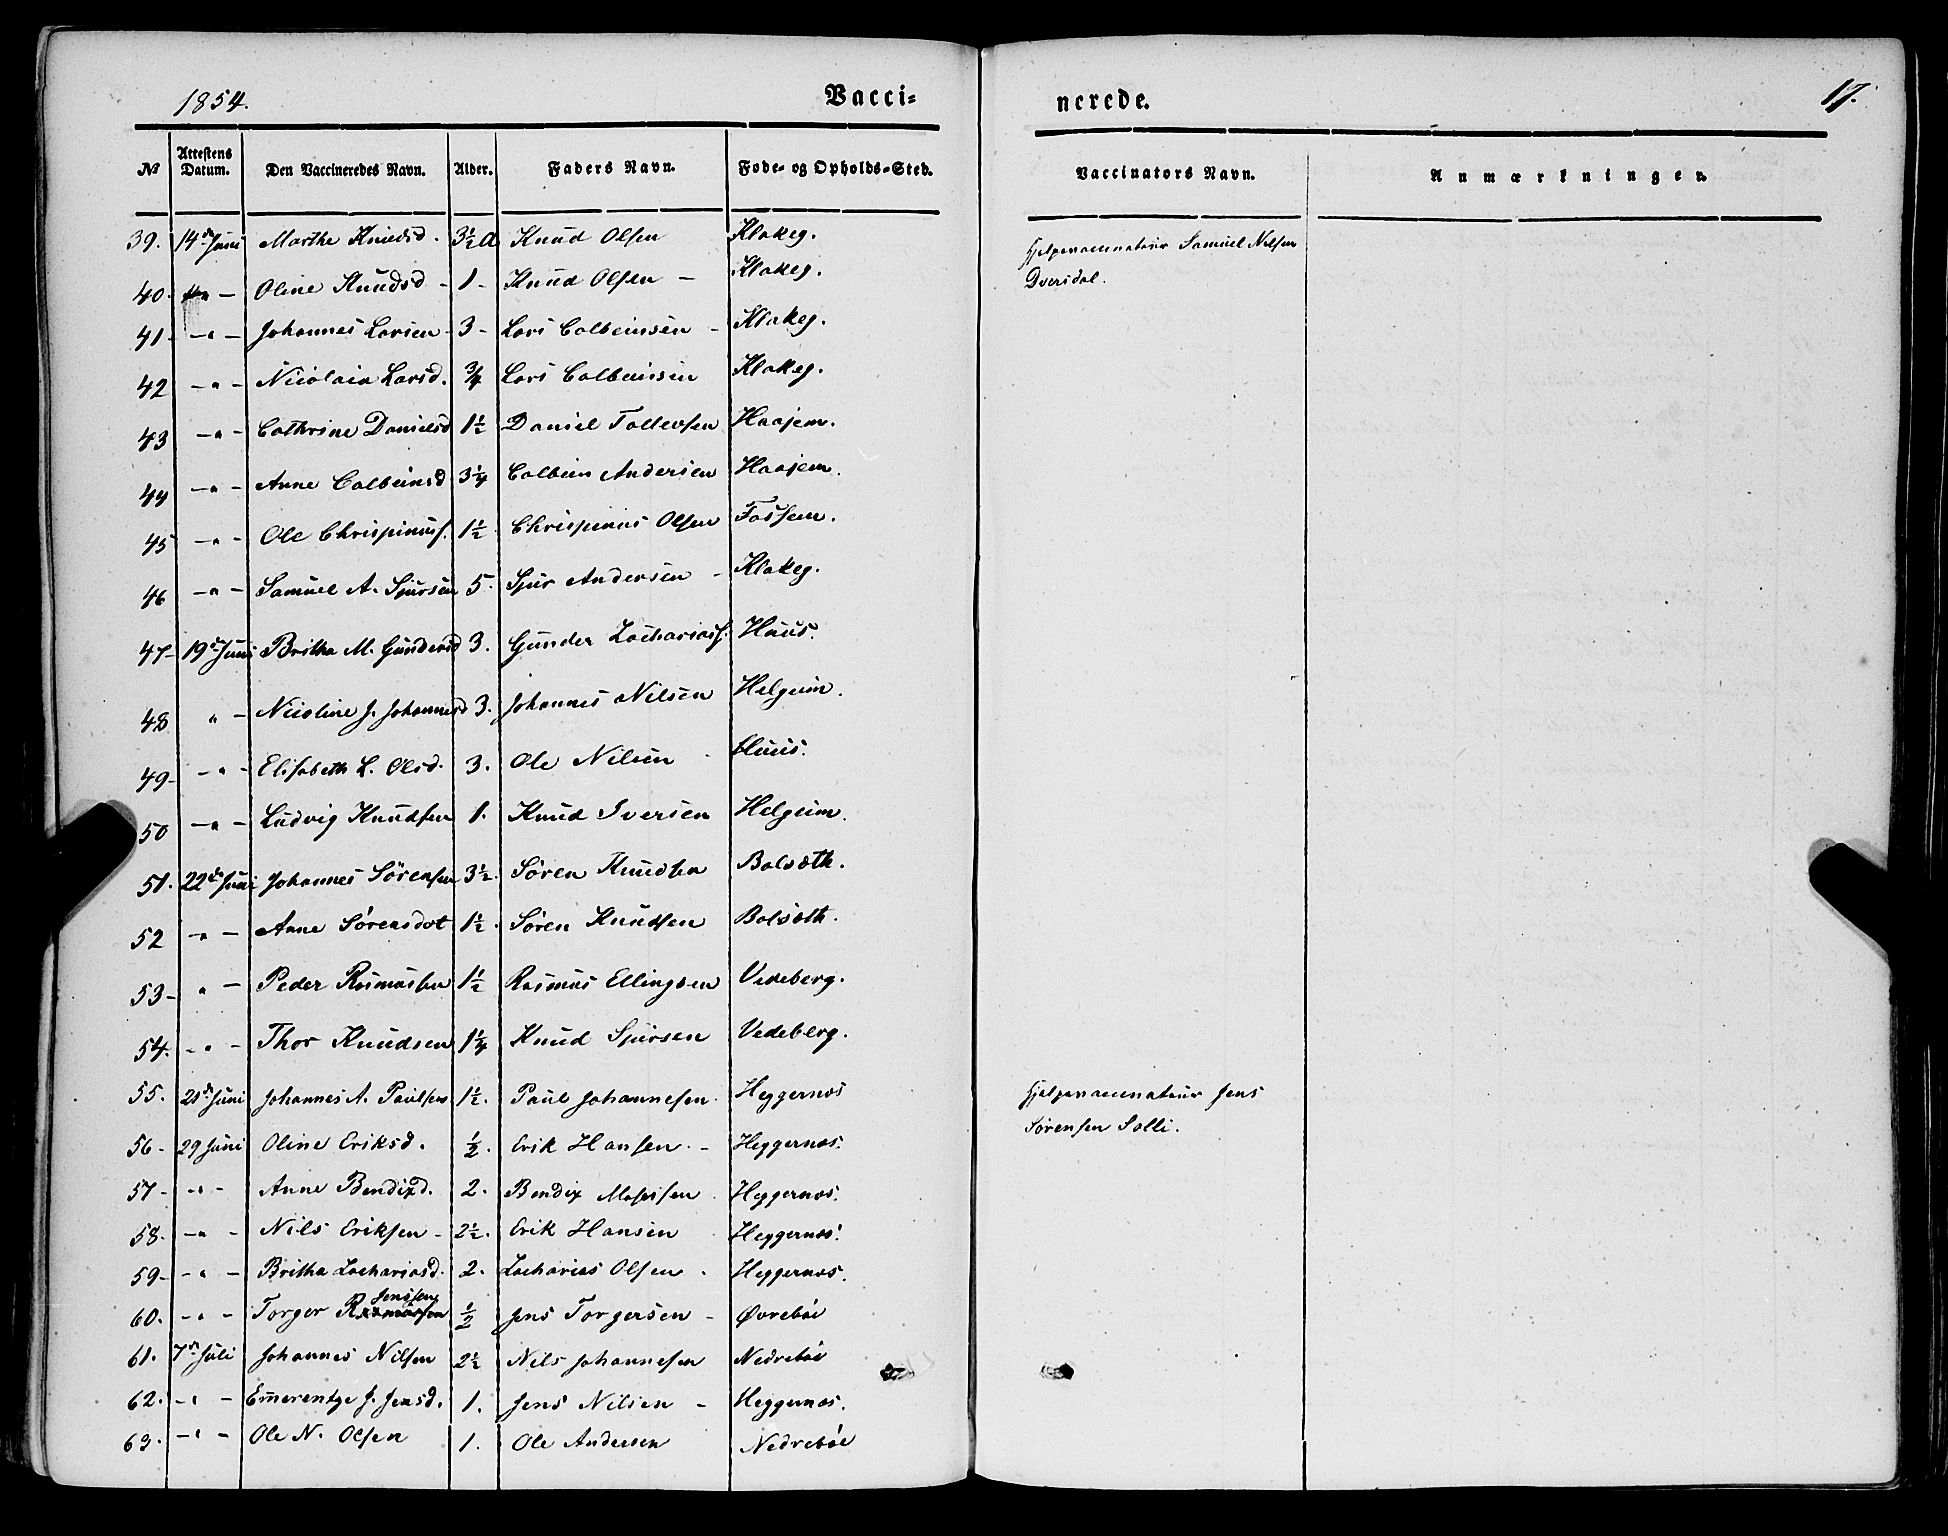 1854. Vacci= nerede. 17.
No Attestens Datum. Den Vaccineredes Navn. Alder. Faders Navn. Føde- og Opholds-Sted. Vaccinators Navn. Anmærkninger.
39. 14de Juni Marthe Knudsd. 3½ A Knud Olsen Klakeg. Hjelpevaccinateur Samuel Nilsen
40. — Oline Knudsd - 1 - Knud Olsen — Klakeg. Dversdal.
41 - —"— Johannes Larsen - 3 - Lars Colbeinsen - Klakeg.
42 —"- Nicolaia Larsd. ¾ Lars Colbeinsen Klakeg.
43 —"- Cathrine Danielsd 1½ Daniel Tollevsen Haajem.
44 —"- Anne Colbeinsd 3¼ Colbein Andersen Haajem.
45 —"- Ole Chrispinusf. 1½ Chrispinus Olsen Fossem.
46 —"- Samuel A. Sjursen 5. Sjur Andersen - Klakeg.
47 - 19de Juni Britha M. Gundersd 3. Gunder Zachariasf. Huus.
48 " - Nicoline J. Johannesd 3. Johannes Nilsen Helgeim.
49 - -"- Elisabeth L. Olsd. 3. Ole Nilsen - Huus.
50 —"- Ludvig Knudsen 1. Knud Iversen Helgeim.
51. 22de Juni Johannes Sörensen 3½. Sören Knudsen Bolsæth.
52 -"- Anne Sörensdot 1½. Sören Knudsen Bolsæth.
53 - "- Peder Rasmussen 1½ Rasmus Ellingsen Vedeberg.
54. -"- Thor Knudsen 1¼ Knud Sjursen Vedeberg.
55. 21de Juni Johannes A. Paulsen 1½. Paul Johannesen. Heggernæs Hjelpevaccinateur Jens
56 - 29 Juni Oline Eriksd. ½. Erik Hansen. - Heggernæs. Sørensen Solli.
57 - -"- Anne Bendixd. 2. Bendix Mossesen Heggernæs.
58. -"- Nils Eriksen - 2½. Erik Hansen Heggernæs.
59 - -"- Britha Zachariasd. 2. Zacharias Olsen . Heggernæs.
Jensen
60. -"- Torger Rasmussen ½ Jens Torgersen - Øvrebøe
61. 7de Juli Johannes Nilsen 2½ Nils Johannesen Nedrebøe
62. -"- Emerentze J. Jensd. 1. Jens Nilsen - Heggernæs.
63. -"- Ole N. Olsen 1. Ole Andersen Nedrebøe